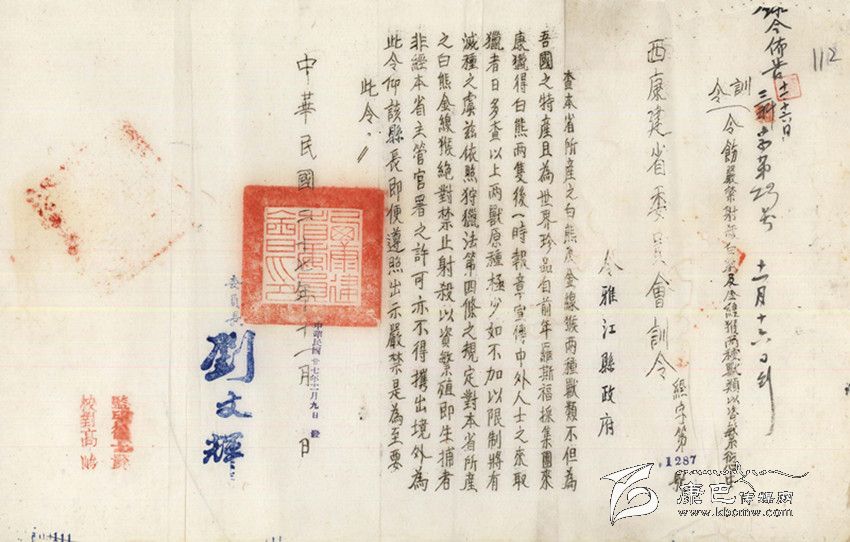 112
錄令佈告 十一、十六日
三科 字第23号 十一月十六日到
訓令
令飭嚴禁射殺白熊及金線猴兩種獸類以資繁殖由
西康建省委員會訓令
經字第 1287 號
令雅江縣政府
查本省所產之白熊及金線猴兩種獸類不但為
吾國之特產且為世界珍品自前年羅斯福採集團來
康獵得白熊兩隻後一時報章宣傳中外人士之來取
獵者日多查以上兩獸原種極少如不加以限制將有
滅種之虞茲依照狩獵法第四條之規定對本省所產
之白熊金線猴絕對禁止射殺以資繁殖即生捕者
非經本省主管官署之許可亦不得攜出境外為
此令仰該縣長即便遵照出示嚴禁是為至要
此令
中華民國二十七年十一月 日
中華民國廿七年十一月九日 發
委員長
劉文輝
校對高
康巴傳媒網
www.kbcmw.com